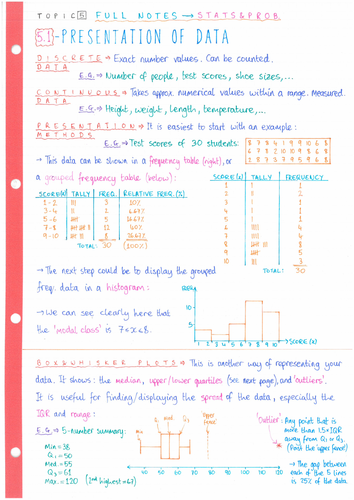 TOPIC 5 FULL NOTES → STATS & PROB.
5.1 - PRESENTATION OF DATA
DISCRETE DATA → Exact number values. Can be counted.
E.G. → Number of people, test scores, shoe sizes,...
CONTINUOUS DATA → Takes approx. numerical values within a range. Measured.
E.G. → Height, weight, length, temperature,...
PRESENTATION METHODS → It is easiest to start with an example:
E.G. → Test scores of 30 students:
→ This data can be shown in a frequency table (right), or
a grouped frequency table (below):
SCORE(x) TALLY FREQUENCY
SCORE(x) TALLY FREQ. RELATIVE FREQ.(%)
1-2
3-4
5-6
7-8
9-10
TOTAL: 30 (100%)
TOTAL: 30
→ The next step could be to display the grouped
freq. data in a histogram:
→ We can see clearly here that
the 'modal class' is 7≤x≤8.
FREQ.
10
5
1 2 3 4 5 6 7 8 9 10
SCORE (x)
BOX & WHISKER PLOTS → This is another way of representing your
data. It shows: the median, upper/lower quartiles (see next page), and 'outliers'.
It is useful for finding/displaying the spread of the data, especially the
IQR and range:
E.G. → 5-number summary:
Min = 38
Q₁ = 50
Med = 55
Q₃ = 61
Max = 120 (2nd highest = 63)
Upper fence
40 50 60 70 80 90 100 110 120
'Outlier': Any point that is
more than 1.5×IQR
away from Q₁ or Q₃.
(Past the upper fence)
→ The gap between
each of the 5 lines
is 25% of the data